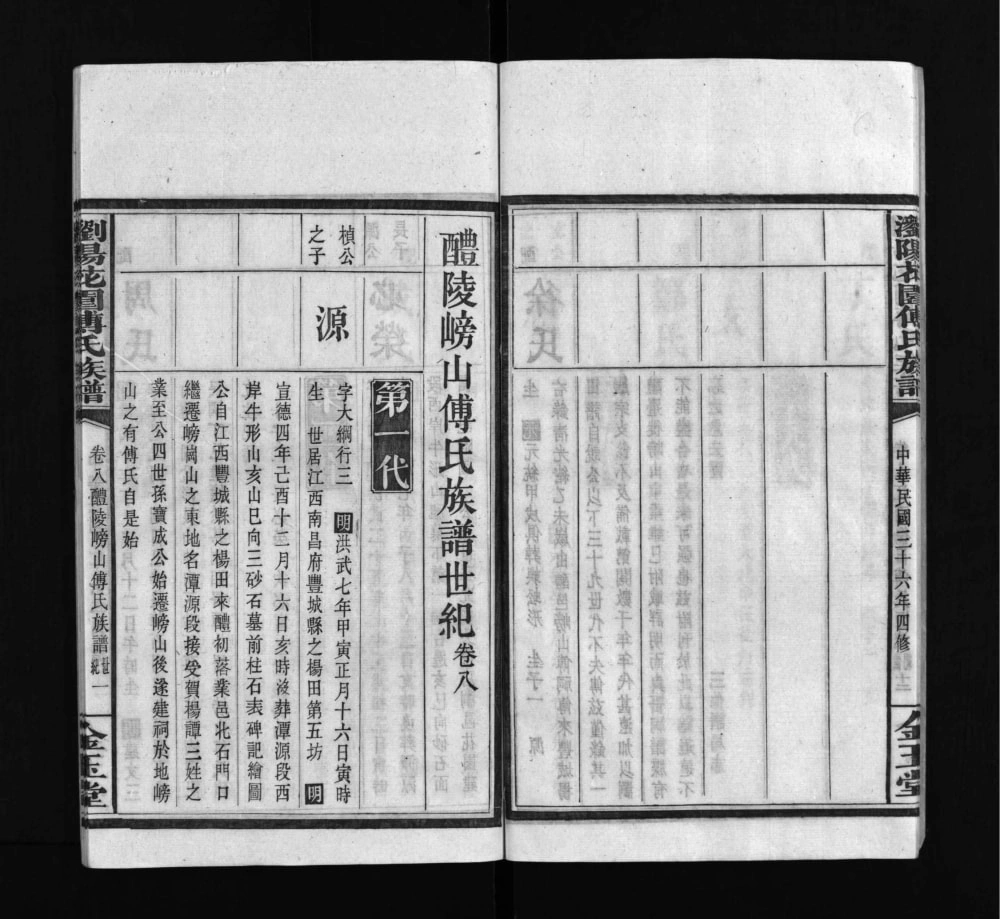 瀏陽花園傅氏族譜
中華民國三十六年四修
金玉堂
醴陵嵭山傅氏族譜世紀卷八
第一代
楨公
之子
源
字大綱行三 明洪武七年甲寅正月十六日寅時
生 世居江西南昌府豐城縣之楊田第五坊 明
宣德四年己酉十二月十六日亥時歿葬潭源段西
岸牛形山亥山巳向三砂石墓前柱石表碑記繪圖
公自江西豐城縣之楊田來醴初落業邑北石門口
繼遷嵭崗山之東地名潭源段接受賀楊譚三姓之
業至公四世孫寶成公始遷嵭山後遂建祠於地嵭
山之有傅氏自是始
瀏陽花園傅氏族譜
卷八醴陵嵭山傅氏族譜世紀 一
金玉堂